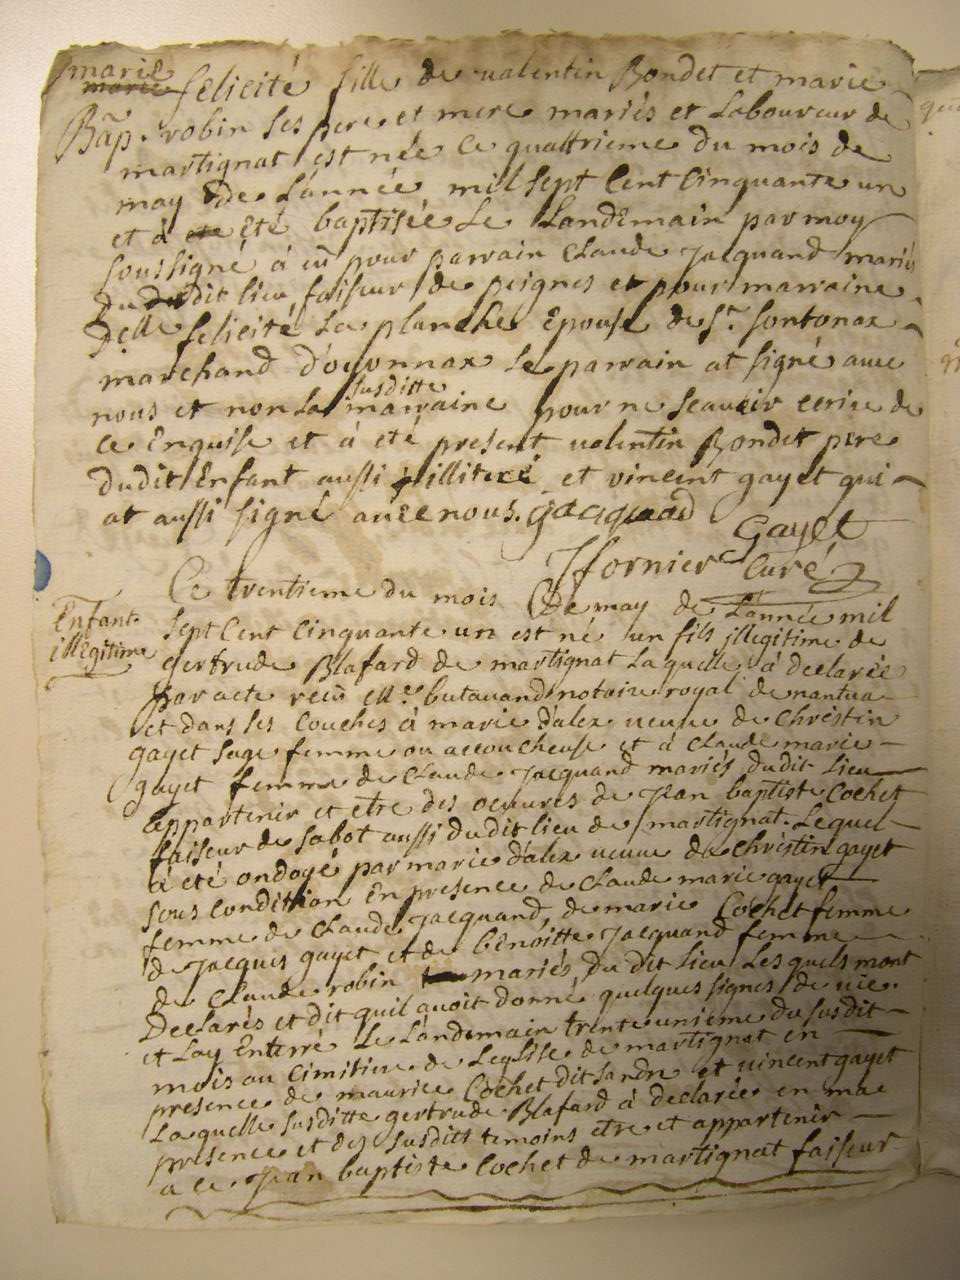 marie
marie felicité fille de valentin Bondet et marie
Bap. robin ses pere et mere mariés et Laboureur de
martignat est née Le quattrieme du mois de
may de Lannée mil sept Cent Cinquante un
et à eté eté baptisée Le Landemain par moy
soussigné à eü pour parrain Claude Jacquand mariés
du dit lieu faiseur de peignes et pour marraine
Delle felicité La planche Epouse de Sr. Sontonax
marchand d'oyonnax Le parrain at signé avec
susditte
nous et non La marraine pour ne scavoir ecrire de
ce Enquise et à eté present valentin Bondet pere
dudit Enfant aussi illiteré et vincent gayet qui
at aussi signé avec nous. jacquand
Gayet
Jfornier Curé
Ce trentieme du mois De may de L'année mil
Enfant
illegitime
sept Cent Cinquante un est né un fils jllegitime de
gertrude Blafard de martignat Laquelle à declarée
par acte reçü Me. butavand notaire royal de nantua
et dans ses Couches à marie d'alex veuve de Christin
gayet sage femme ou accoucheuse et à Claude marie
gayet femme de Claude Jacquand mariés dudit Lieu
appartenir et etre des oeuvres de Jean baptiste Cochet
faiseur de sabot aussi du dit lieu de martignat. Lequel
à été ondoyé par marie d'alex veuve de Christin gayet
sous condition En presence de Claude marie gayet
femme de Claude Jacquand, de marie Cochet femme
de Jacques gayet et de Benoitte Jacquand femme
de Claude robin mariés du dit Lieu Lesquels mont
Declarés et dit quil avoit donné quelques signes de vie.
et Lay Enterré Le Landemain trente unieme du susdit
mois au Cimitiere de Leglise de martignat en
presence de maurice Cochet dit Landre et vincent gayet
Laquelle susditte gertrude Blafard à declarée en ma
presence et des susdits temoins etre et appartenir
a ce Jean baptiste Cochet de martignat faiseur